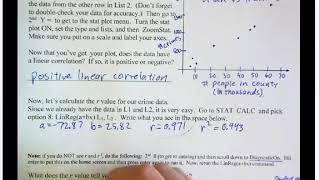 the data from the other row in List 2. (Don't forget
to double-check your data for accuracy.) Then go to
2nd Y = to get to the stat plot menu. Turn the stat
plot ON, set the type and lists, and then ZoomStat.
Make sure you put on a scale and label your axes.
Now that you've got your plot, does the data have
a linear correlation? If so, it is positive or negative?
positive linear correlation
5 10 15 20 25 30 35 40
# people in county
(in thousands)
Now, let's calculate the r value for our crime data.
Since we already have the data in L1 and L2, it is very easy. Go to STAT CALC and pick
option 8: LinReg(a+bx) L1, L2. Write what you see in the space below.
a=-72.87 b=25.82 r=0.971 r²=0.943
Note: if you do NOT see r and r², do the following: 2nd 0 (to get to catalog) and then scroll down to DiagnosticOn. Hit
enter to put this on the home screen and then press enter again to run it. Now, rerun LinReg and you should be ok.
What does the r value tell you